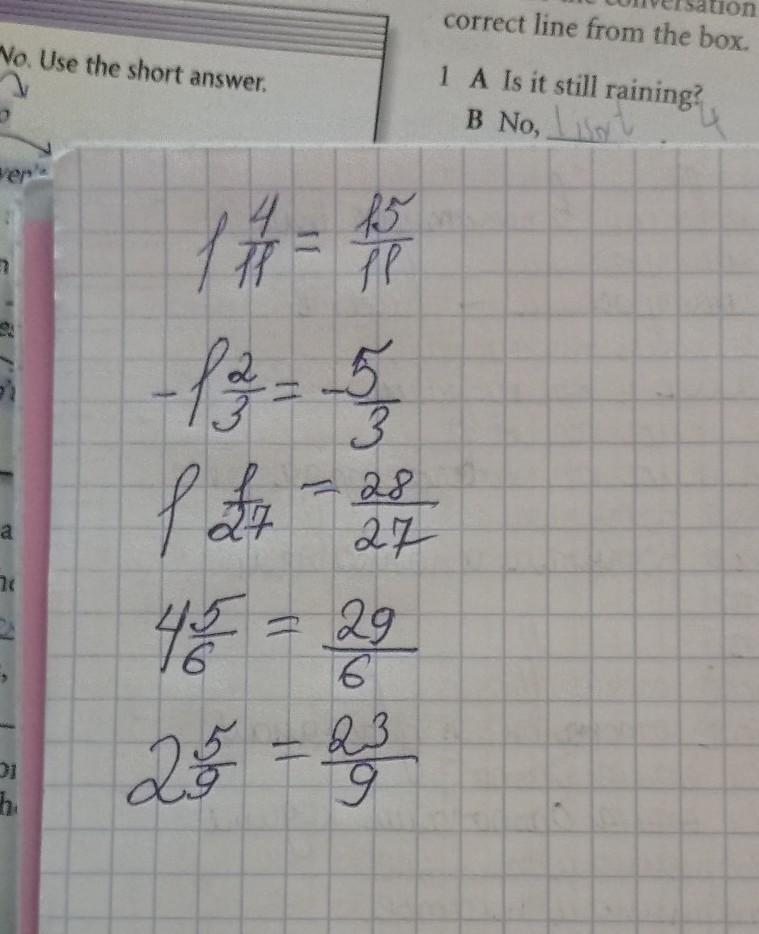 conversation
correct line from the box.
No. Use the short answer.
1 A Is it still raining?
B No,
1 4/11 = 15/11
-1 2/3 = -5/3
1 1/27 = 28/27
4 5/6 = 29/6
2 5/9 = 23/9